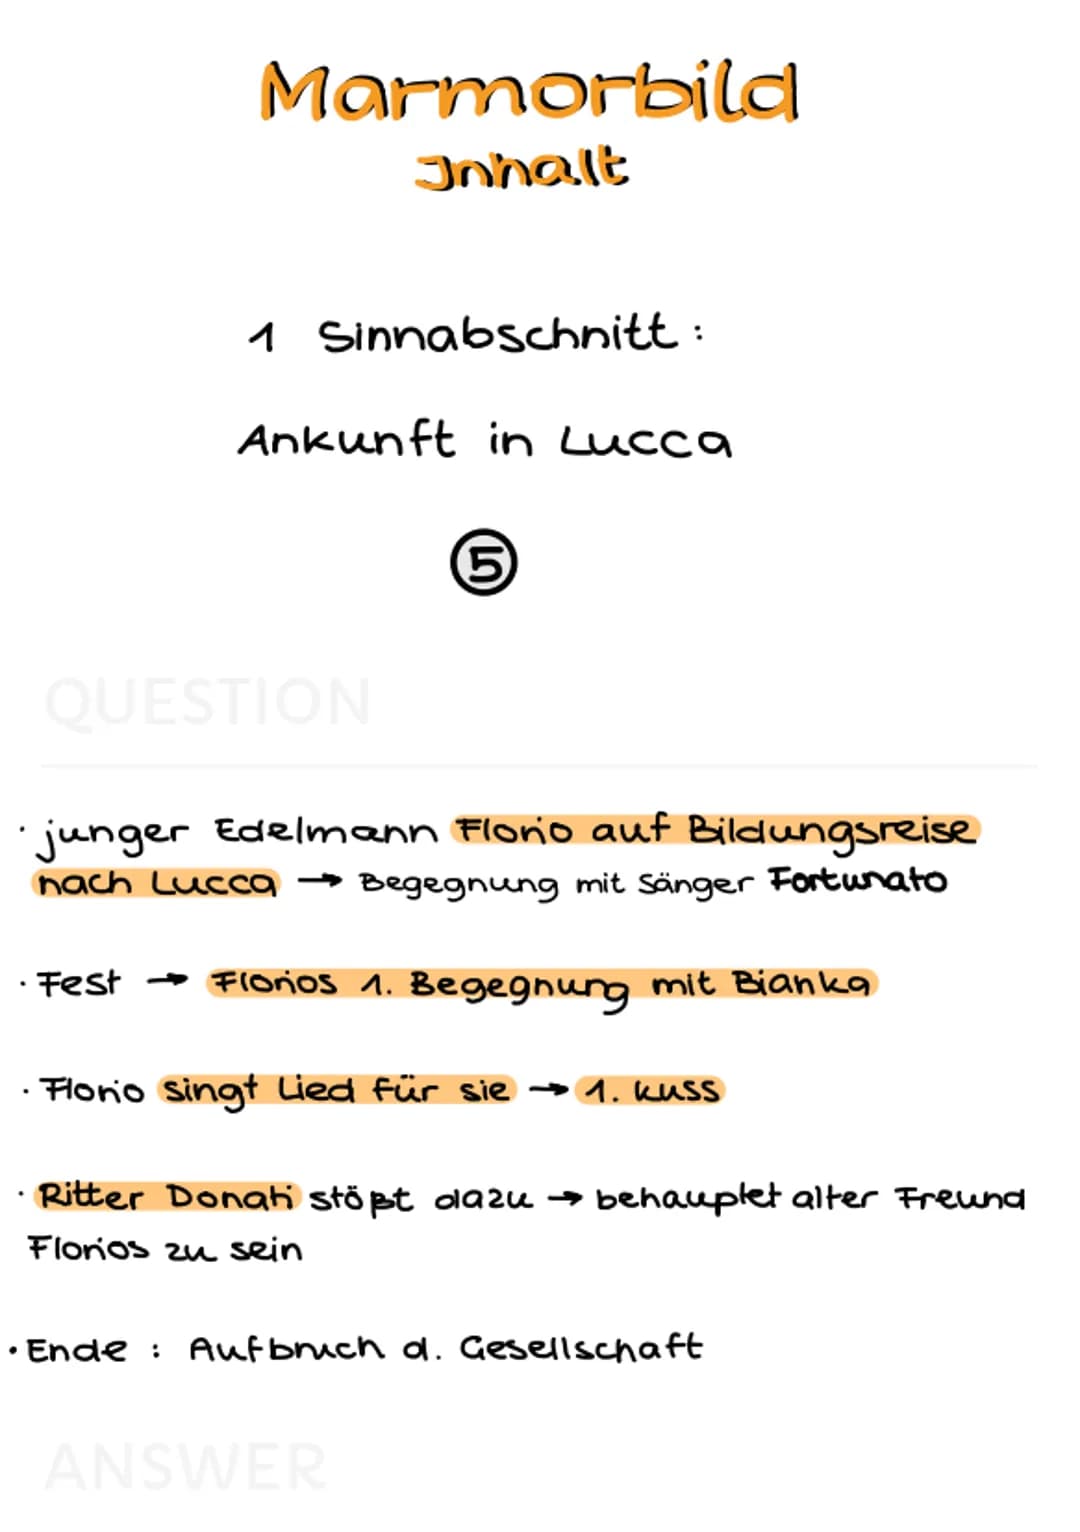 Marmorbild
Inhalt
1 Sinnabschnitt :
Ankunft in Lucca
5
QUESTION
· junger Edelmann Florio auf Bildungsreise
nach Lucca → Begegnung mit Sänger Fortunato
· Fest → Florios 1. Begegnung mit Bianka
· Florio singt Lied für sie → 1. Kuss
· Ritter Donati stößt dazu → behauptet alter Freund
Florios zu sein
· Ende : Aufbruch d. Gesellschaft
ANSWER